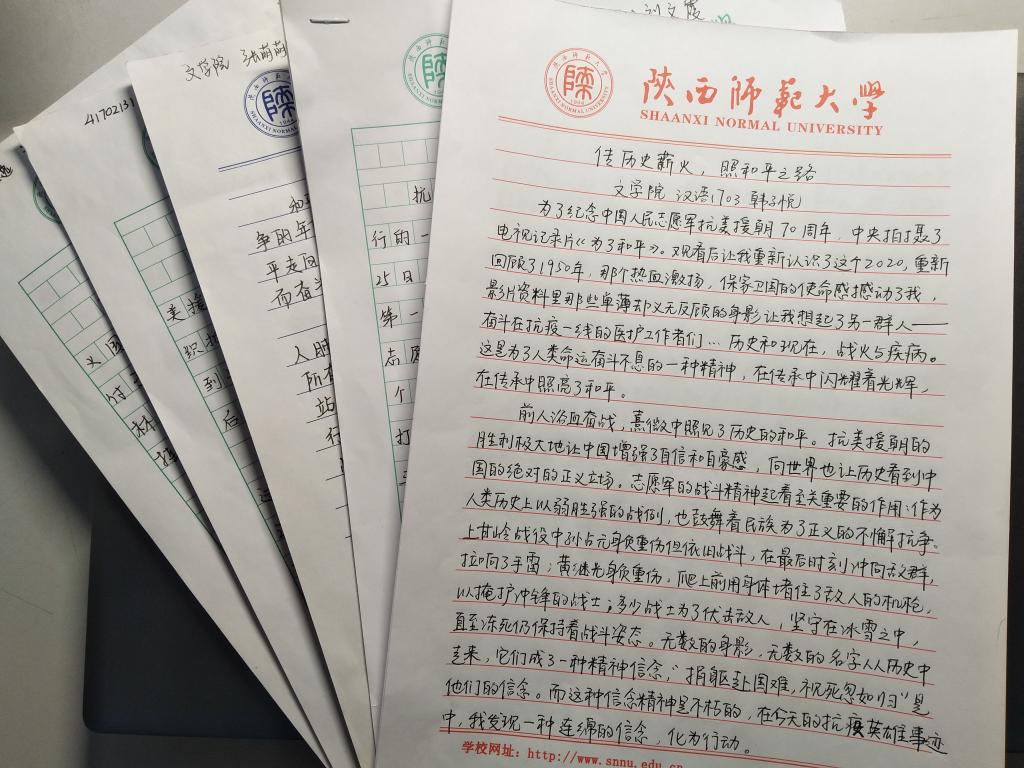 陕西师范大学
SHAANXI NORMAL UNIVERSITY
传历史薪火，照和平之路
文学院 汉语1703 韩子悦
为了纪念中国人民志愿军抗美援朝70周年，中央拍摄了
电视记录片《为了和平》。观看后让我重新认识了这个2020，重新
回顾了1950年，那个热血激扬，保家卫国的使命感撼动了我，
影片资料里那些单薄却义无反顾的身影让我想起了另一群人——
奋斗在抗疫一线的医护工作者们…历史和现在，战火与疾病。
这是为了人类命运奋斗不息的一种精神，在传承中闪耀着光辉，
在传承中照亮了和平。
前人浴血奋战，熹微中照见了历史的和平。抗美援朝的
胜利极大地让中国增强了自信和自豪感，向世界也让历史看到中
国的绝对的正义立场。志愿军的战斗精神起着至关重要的作用：作为
人类历史上以弱胜强的战例，也鼓舞着民族为了正义的不懈抗争。
上甘岭战役中孙占元身负重伤但依旧战斗，在最后时刻冲向敌群，
拉响了手雷；黄继光身负重伤，爬上前用身体堵住了敌人的机枪，
以掩护冲锋的战士；多少战士为了伏击敌人，坚守在冰雪之中，
直至冻死仍保持着战斗姿态。无数的身影，无数的名字从历史中
走来，它们成了一种精神信念，“捐躯赴国难，视死忽如归”是
他们的信念。而这种信念精神是不朽的，在今天的抗疫英雄事迹
中，我发现一种连绵的信念，化为行动。
学校网址：http://www.snnu.edu.cn
文学院 张萌萌
41702131
争的年
平走回
而奋斗
人胜
所有
站
行
抗
行的一
25日
第一
志愿
个
打
美援
织
到
后
义国